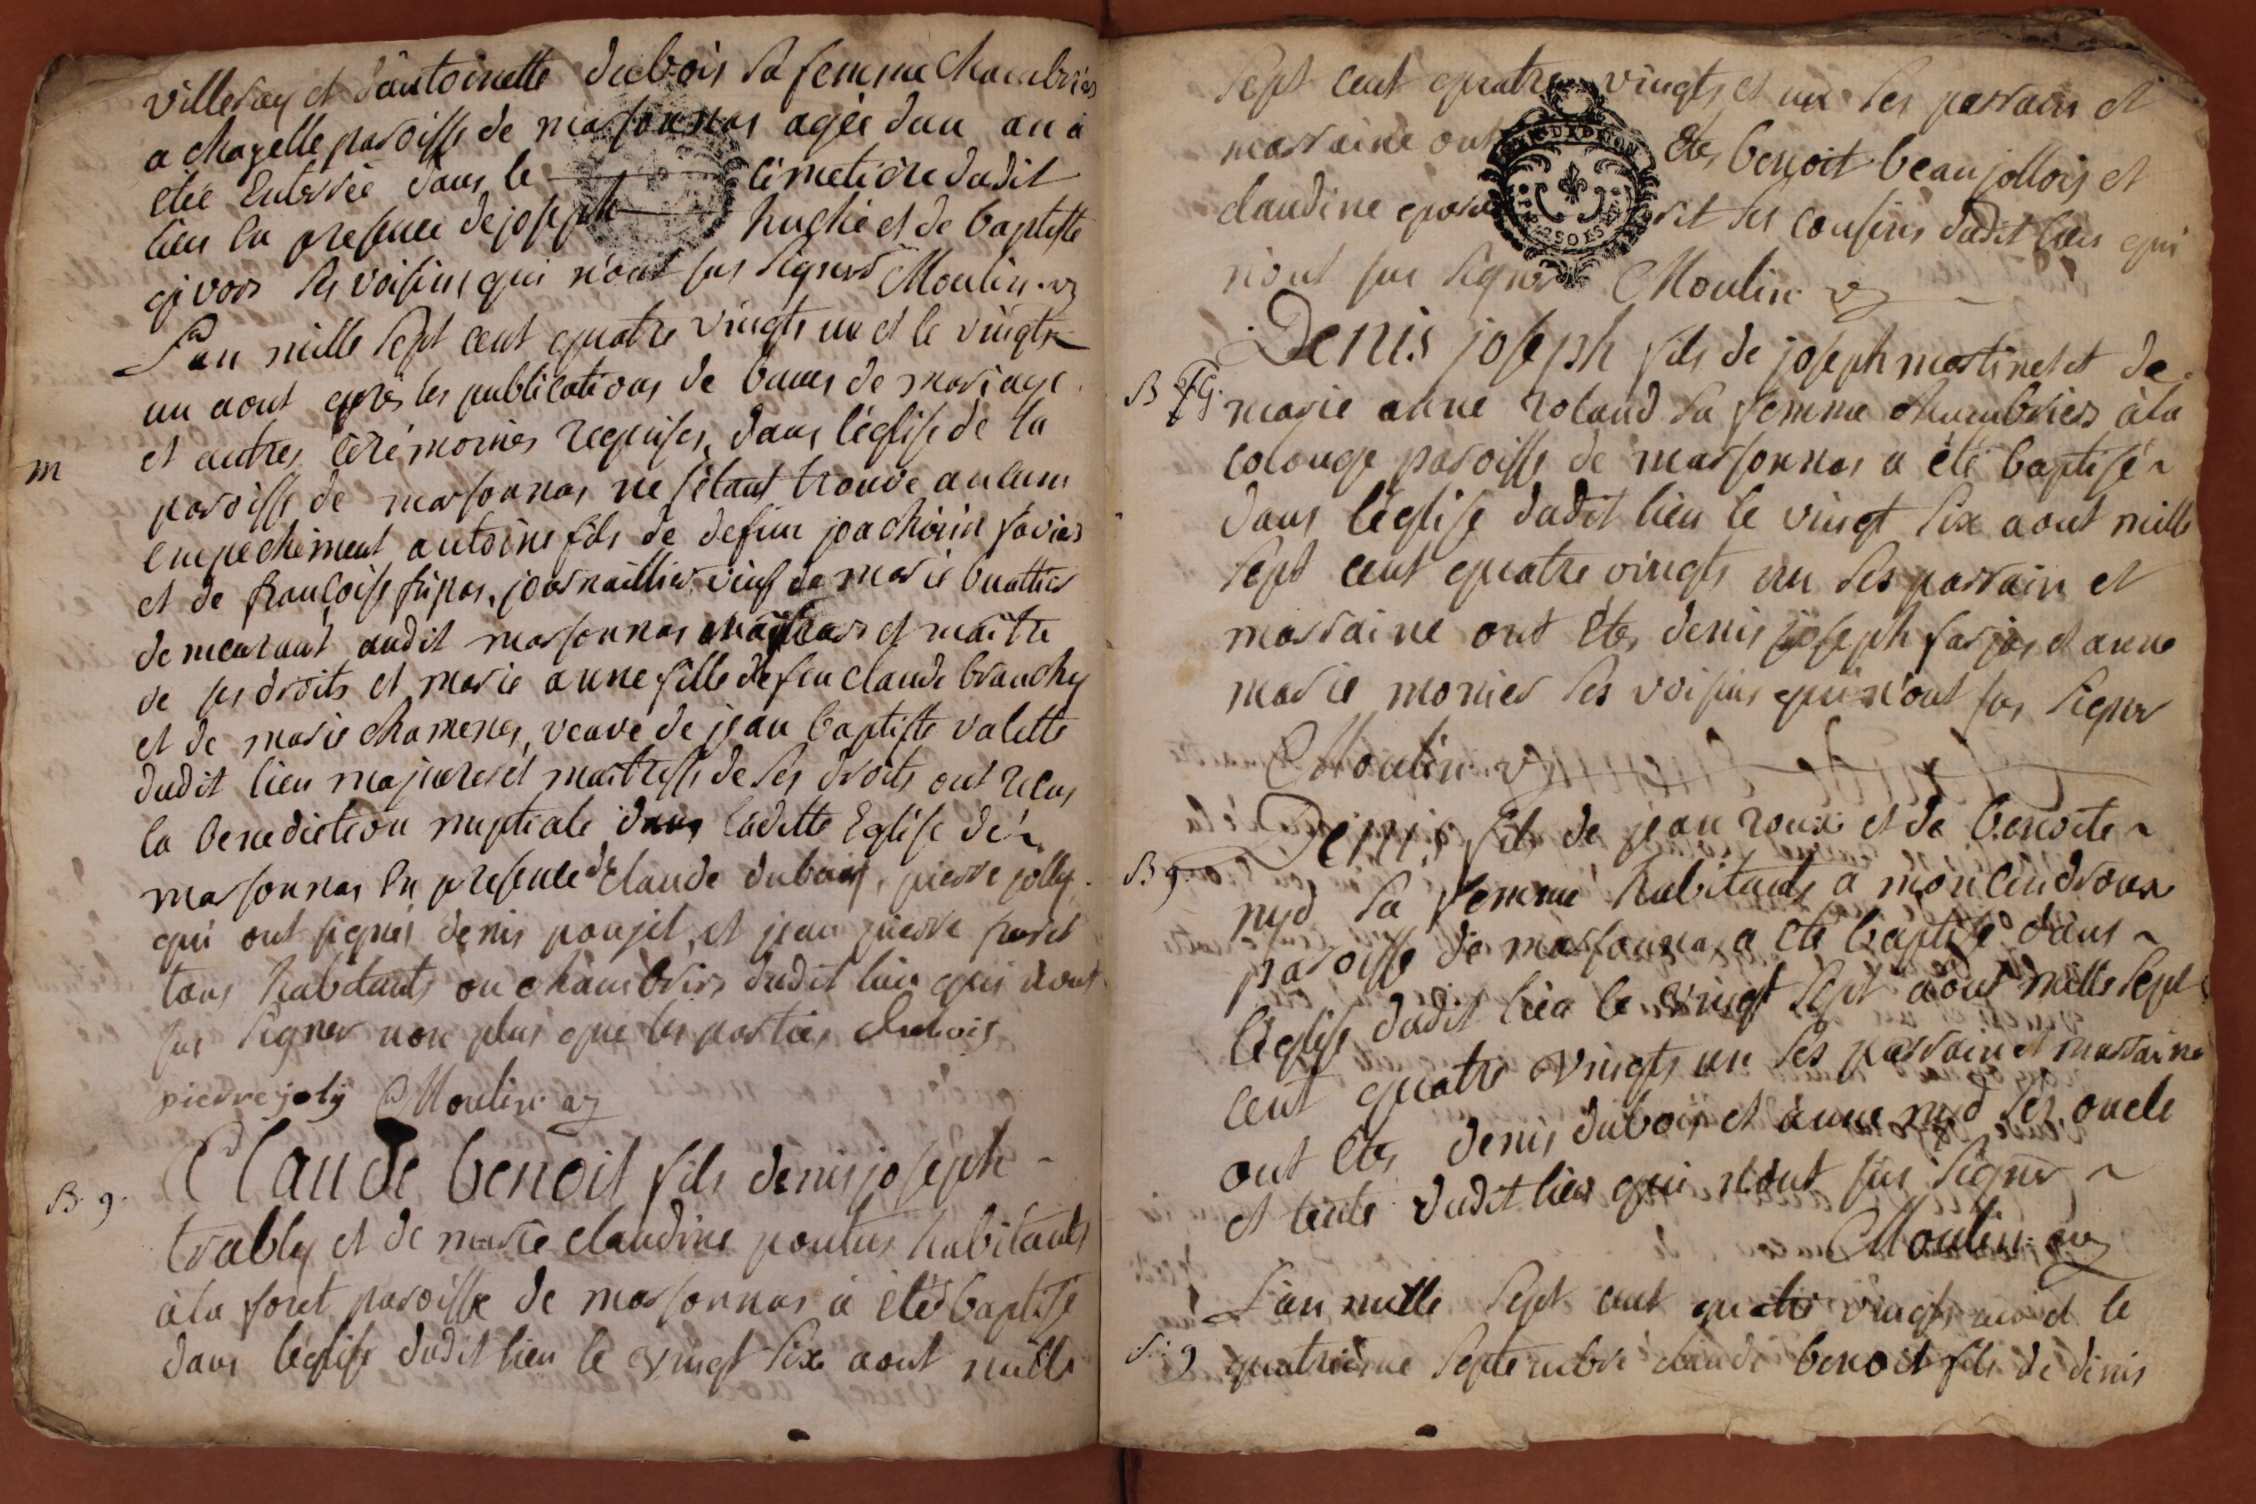 villeray et d'antoinette dubois sa femme chambriers
a chazelle paroisse de marsonnas agée d'un an a
etée enterrée dans le cimetiere dudit
lieu en presence de joseph huchié et de baptiste
givors ses voisins qui n'ont sus signer Moulin
L'an mille sept cent quatre vingts un et le vingts
un aout après les publications de bancs de mariage
et autres cérémonies requises, dans l'église de la
m
paroisse de marsonnas ne s'étant trouvé aucuns
empechement antoine fils de defun joachim
et de françoise journaillier veuf de marie buattier
demeurant audit marsonnas et maitre
de ses droits et marie anne fille de feu claude branchy
et de marie veuve de jean baptiste valette
dudit lieu majeure et maitresse de ses droits ont recus
la benediction nuptiale dans ladette Eglise de
marsonnas en presence de claude dubois, pierre jolly
qui ont signés denis poujet, et jean pierre
tous habitants ou chambriers dudit lieu qui n'ont
sus signer non plus que les parties dubois
pierre joly Moulin
Claude benoit fils denis joseph
B. g.
trably et de marie claudine pontus habitants
a la foret paroisse de marsonnas a été baptisé
dans l'église dudit lieu le vingt six aout mille
sept cent quatre vingts et un ses parrain et
marraine ont étés benoit beaujollois et
claudine ses cousins dudit lieu qui
n'ont sus signer Moulin
Denis joseph fils de joseph martinet et de
B
marie anne roland sa femme chambriers à la
colonge paroisse de marsonnas a été baptisé
dans l'église dudit lieu le vingt six aout mille
sept cent quatre vingts un ses parrain et
marraine ont étés denis joseph farjas et anne
marie monier ses voisins qui n'ont sus signer
Moulin
Denis fils de jean roux et de benoite
B g.
nyd sa femme habitants a moncindroux
paroisse de marsonnas a été baptisé dans
l'église dudit lieu le vingt sept aout mille sept
cent quatre vingts un ses parrain et marraine
ont étés denis dubois et anne nyd ses oncle
et tente dudit lieu qui n'ont sus signer
Moulin
L'an mille sept cent quatre vingts un et le
S. g
quatrième septembre claude benoit fils de denis